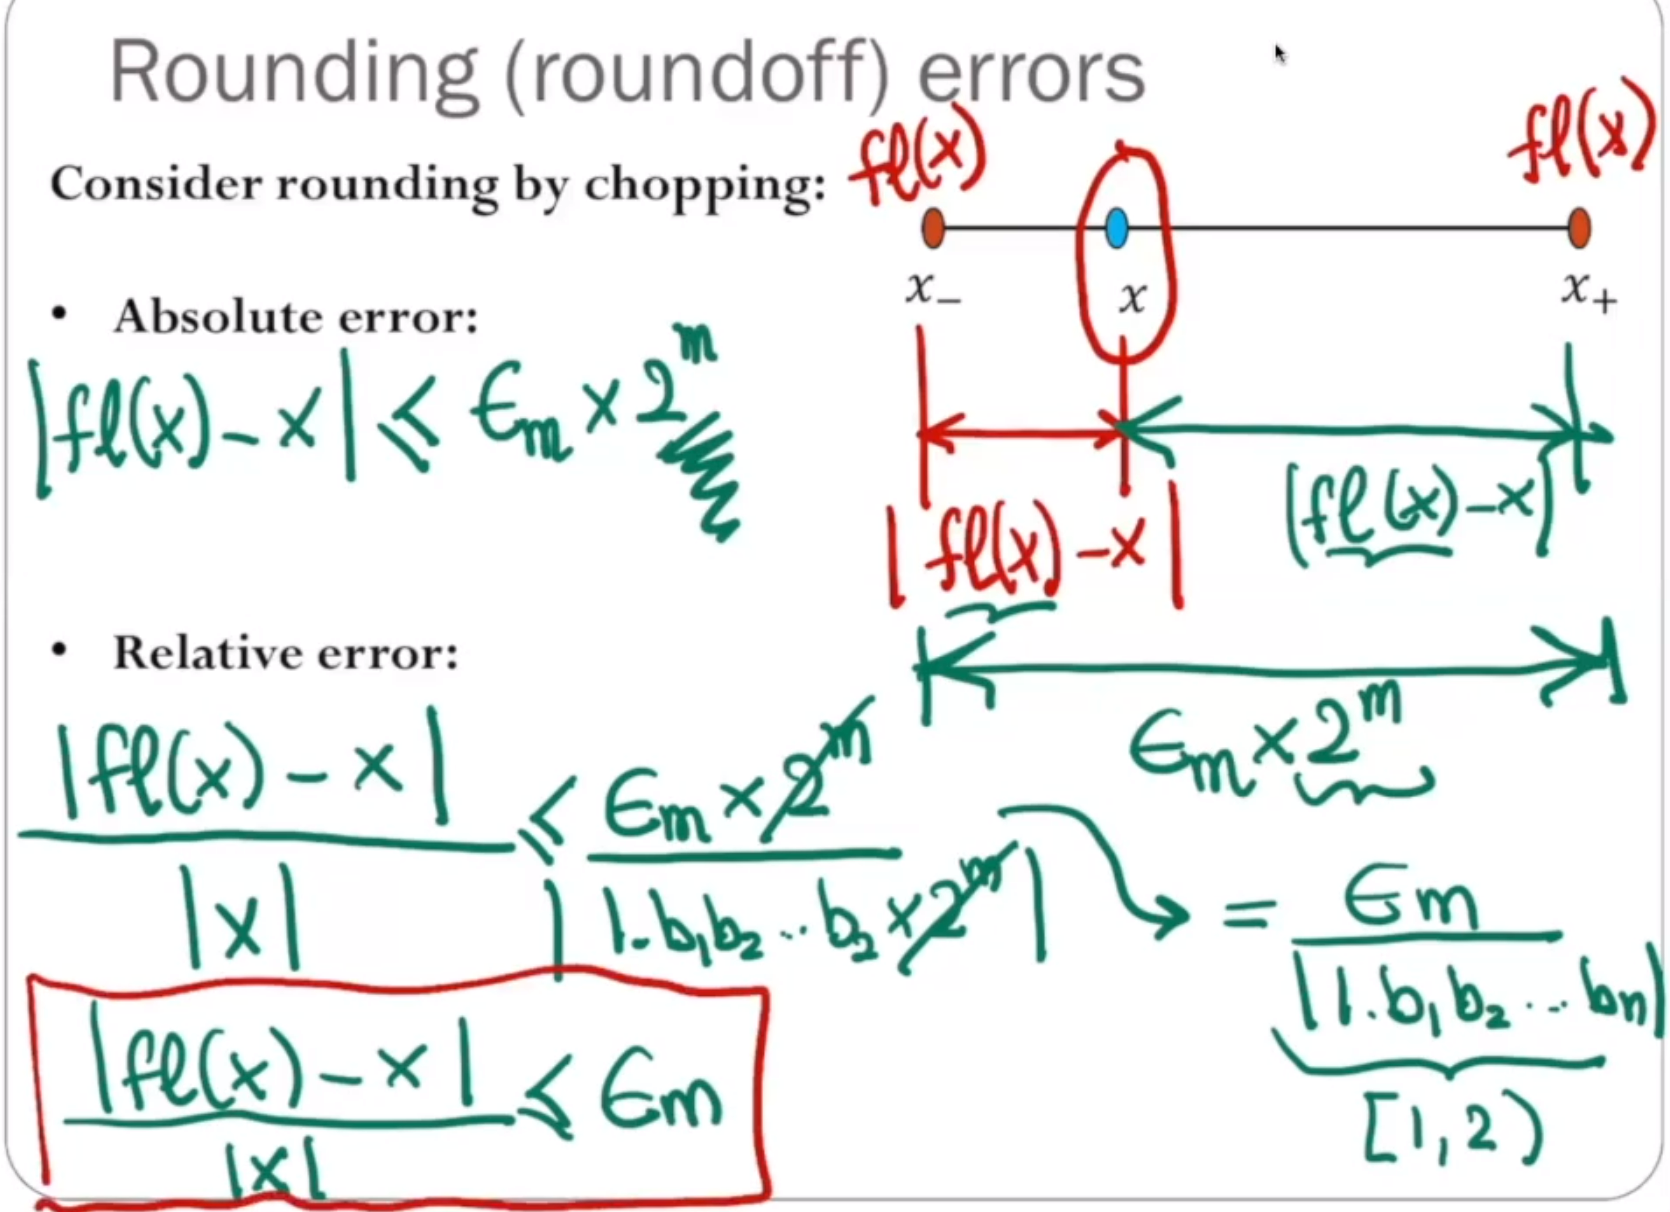 Rounding (roundoff) errors
Consider rounding by chopping:
fl(x)
fl(x)
x₋
x
x₊
• Absolute error:
|fl(x) - x| ≤ ϵm × 2^m
|fl(x) - x|
|fl(x) - x|
ϵm × 2^m
• Relative error:
|fl(x) - x| / |x| ≤ ϵm × 2^m / |1.b₁b₂..b₂ × 2^m|
= ϵm / |1.b₁b₂...bn|
[1,2)
|fl(x) - x| / |x| ≤ ϵm